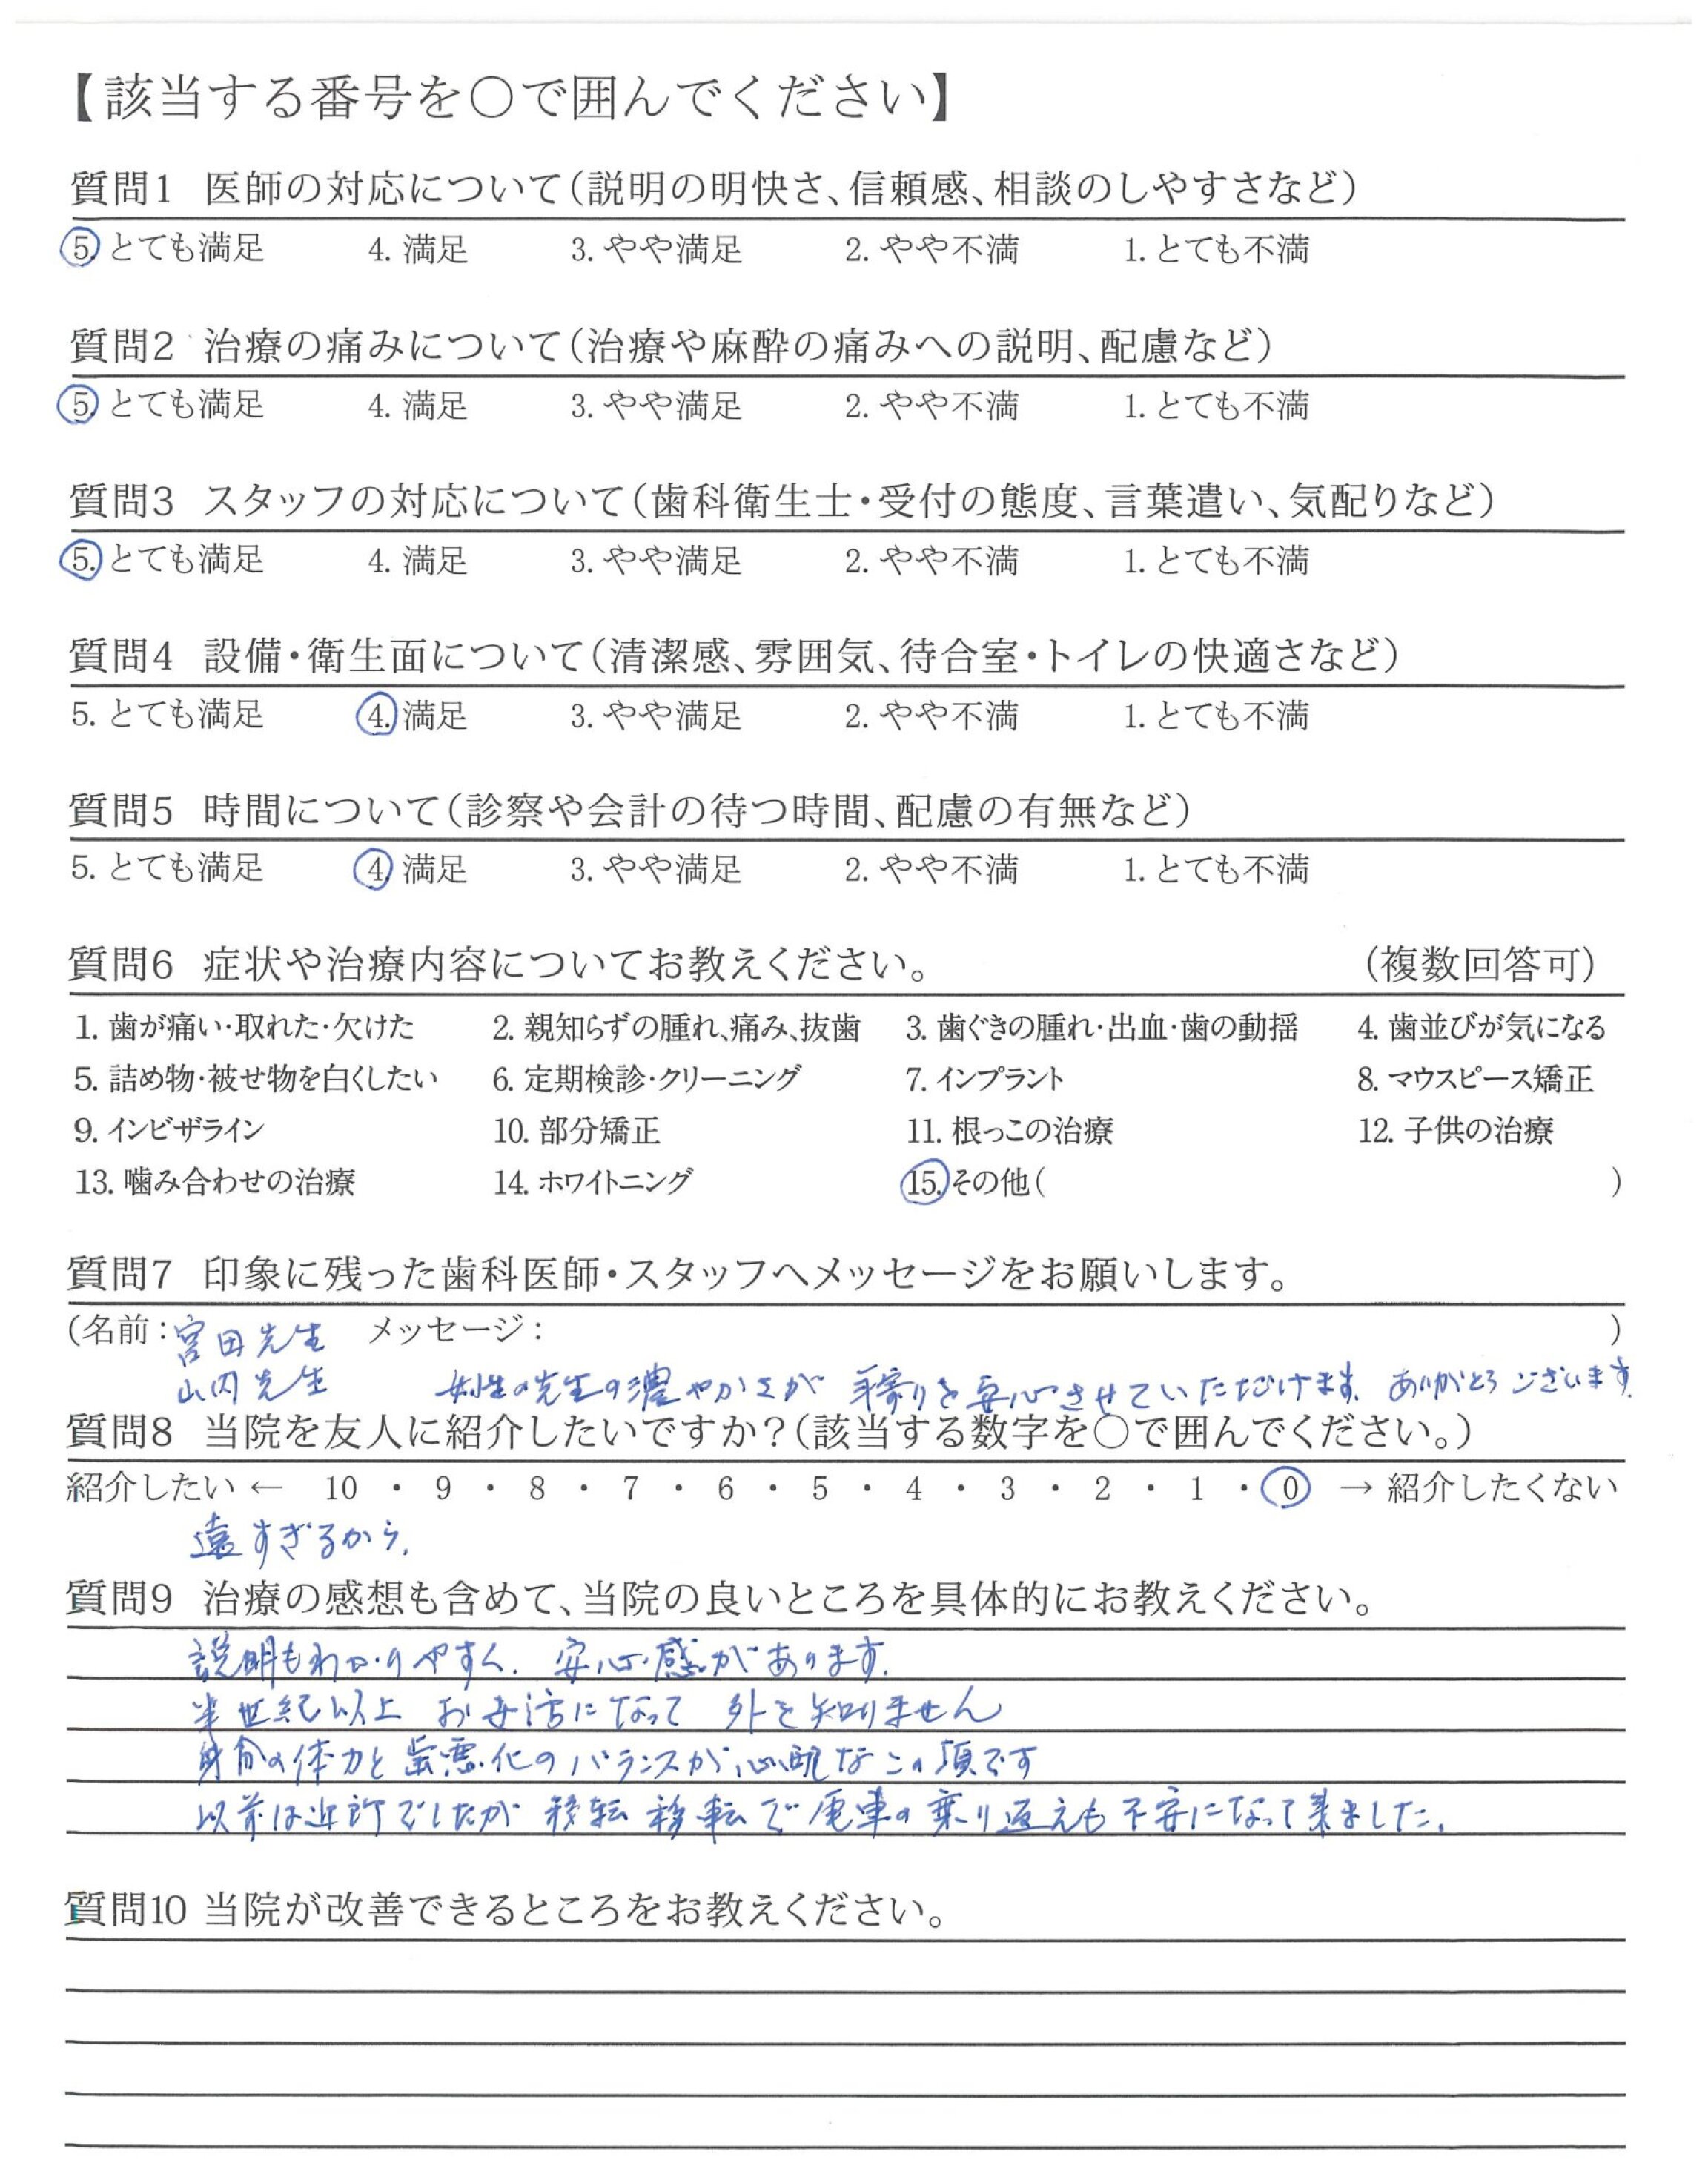 【該当する番号を○で囲んでください】
質問1 医師の対応について(説明の明快さ、信頼感、相談のしやすさなど)
5. とても満足 4. 満足 3. やや満足 2. やや不満 1. とても不満
質問2 治療の痛みについて(治療や麻酔の痛みへの説明、配慮など)
5. とても満足 4. 満足 3. やや満足 2. やや不満 1. とても不満
質問3 スタッフの対応について(歯科衛生士・受付の態度、言葉遣い、気配りなど)
5. とても満足 4. 満足 3. やや満足 2. やや不満 1. とても不満
質問4 設備・衛生面について(清潔感、雰囲気、待合室・トイレの快適さなど)
5. とても満足 4. 満足 3. やや満足 2. やや不満 1. とても不満
質問5 時間について(診察や会計の待つ時間、配慮の有無など)
5. とても満足 4. 満足 3. やや満足 2. やや不満 1. とても不満
質問6 症状や治療内容についてお教えください。 (複数回答可)
1. 歯が痛い・取れた・欠けた 2. 親知らずの腫れ、痛み、抜歯 3. 歯ぐきの腫れ・出血・歯の動揺 4. 歯並びが気になる
5. 詰め物・被せ物を白くしたい 6. 定期検診・クリーニング 7. インプラント 8. マウスピース矯正
9. インビザライン 10. 部分矯正 11. 根っこの治療 12. 子供の治療
13. 噛み合わせの治療 14. ホワイトニング 15. その他( )
質問7 印象に残った歯科医師・スタッフへメッセージをお願いします。
(名前:宮田先生 メッセージ: )
山内先生 女性の先生の濃やかさが 年寄りを安心させていただけます。ありがとうございます。
質問8 当院を友人に紹介したいですか?(該当する数字を○で囲んでください。)
紹介したい ← 10 ・ 9 ・ 8 ・ 7 ・ 6 ・ 5 ・ 4 ・ 3 ・ 2 ・ 1 ・ 0 → 紹介したくない
遠すぎるから。
質問9 治療の感想も含めて、当院の良いところを具体的にお教えください。
説明もわかりやすく、安心感があります。
半世紀以上 お世話になって 外を知りません
自分の体力と歯悪化のバランスが心配なこの頃です
以前は近所でしたが 移転移転で電車の乗り返えも不安になって来ました。
質問10 当院が改善できるところをお教えください。